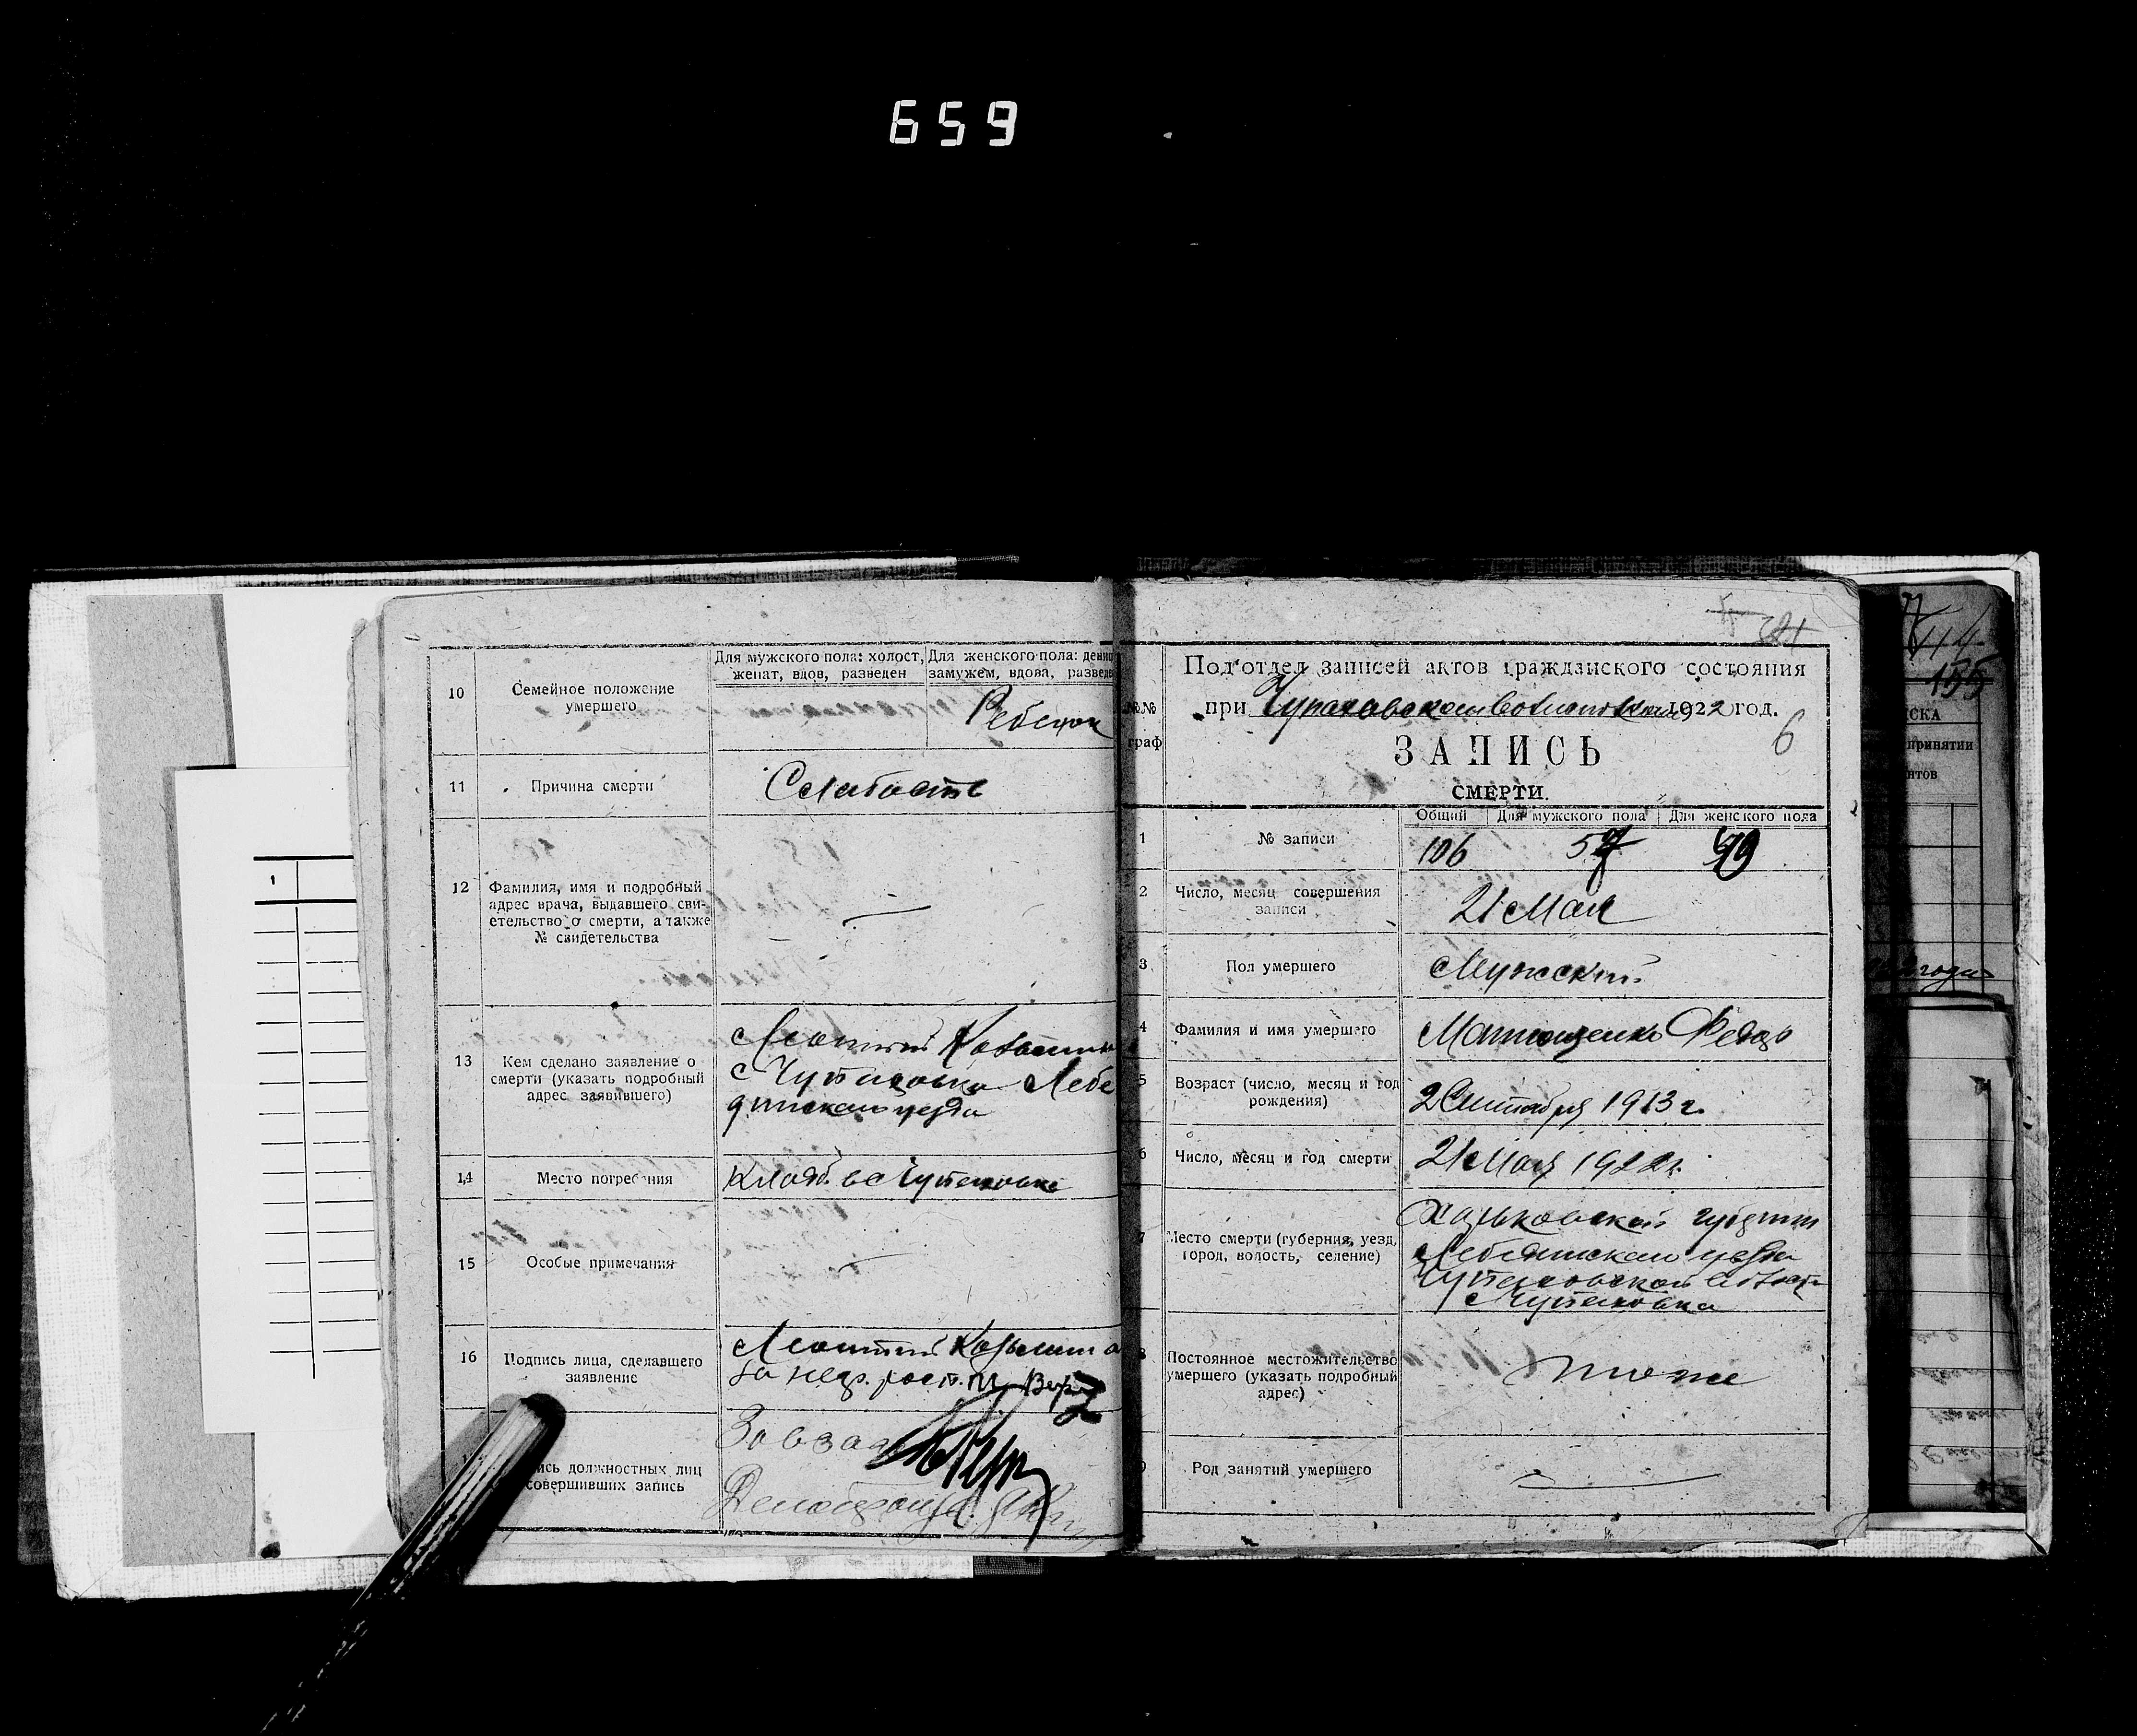 659
10
Семейное положение
умершего
Для мужского пола: холост,
женат, вдов, разведен
Для женского пола: девиц
замужем, вдова, разведе
Ребенок
11
Причина смерти
Слабость
12
Фамилия, имя и подробный
адрес врача, выдавшего сви-
етельство о смерти, а также
№ свидетельства
—
13
Кем сделано заявление о
смерти (указать подробный
адрес заявившего)
Леонтий
с Чупаховка Лебе
динского уезда
14
Место погребения
Кладб. в с Чупаховке
15
Особые примечания
—
16
Подпись лица, сделавшего
заявление
Леонтий
за негр. росп.
ись должностных лиц
совершивших запись
Завзаг
Делопроизв.
34
Под'отдел записей актов гражданского состояния
№№
граф
при Чупаховском 1922 год.
6
ЗАПИСЬ
СМЕРТИ.
Общий
Для мужского пола
Для женского пола
1
№ записи
106
57
49
2
Число, месяц совершения
записи
21 Мая
3
Пол умершего
Мужский
4
Фамилия и имя умершего
Матющенко Федор
5
Возраст (число, месяц и год
рождения)
2 Сентября 1913 г.
6
Число, месяц и год смерти
21 Мая 1922 г.
7
Место смерти (губерния, уезд,
город, волость, селение)
Харьковской губернии
Лебединского уезда
Чупаховской волости
с Чупаховка
8
Постоянное местожительство
умершего (указать подробный
адрес)
тоже
9
Род занятий умершего
—
114
155
СКА
принятии
нтов
года
1